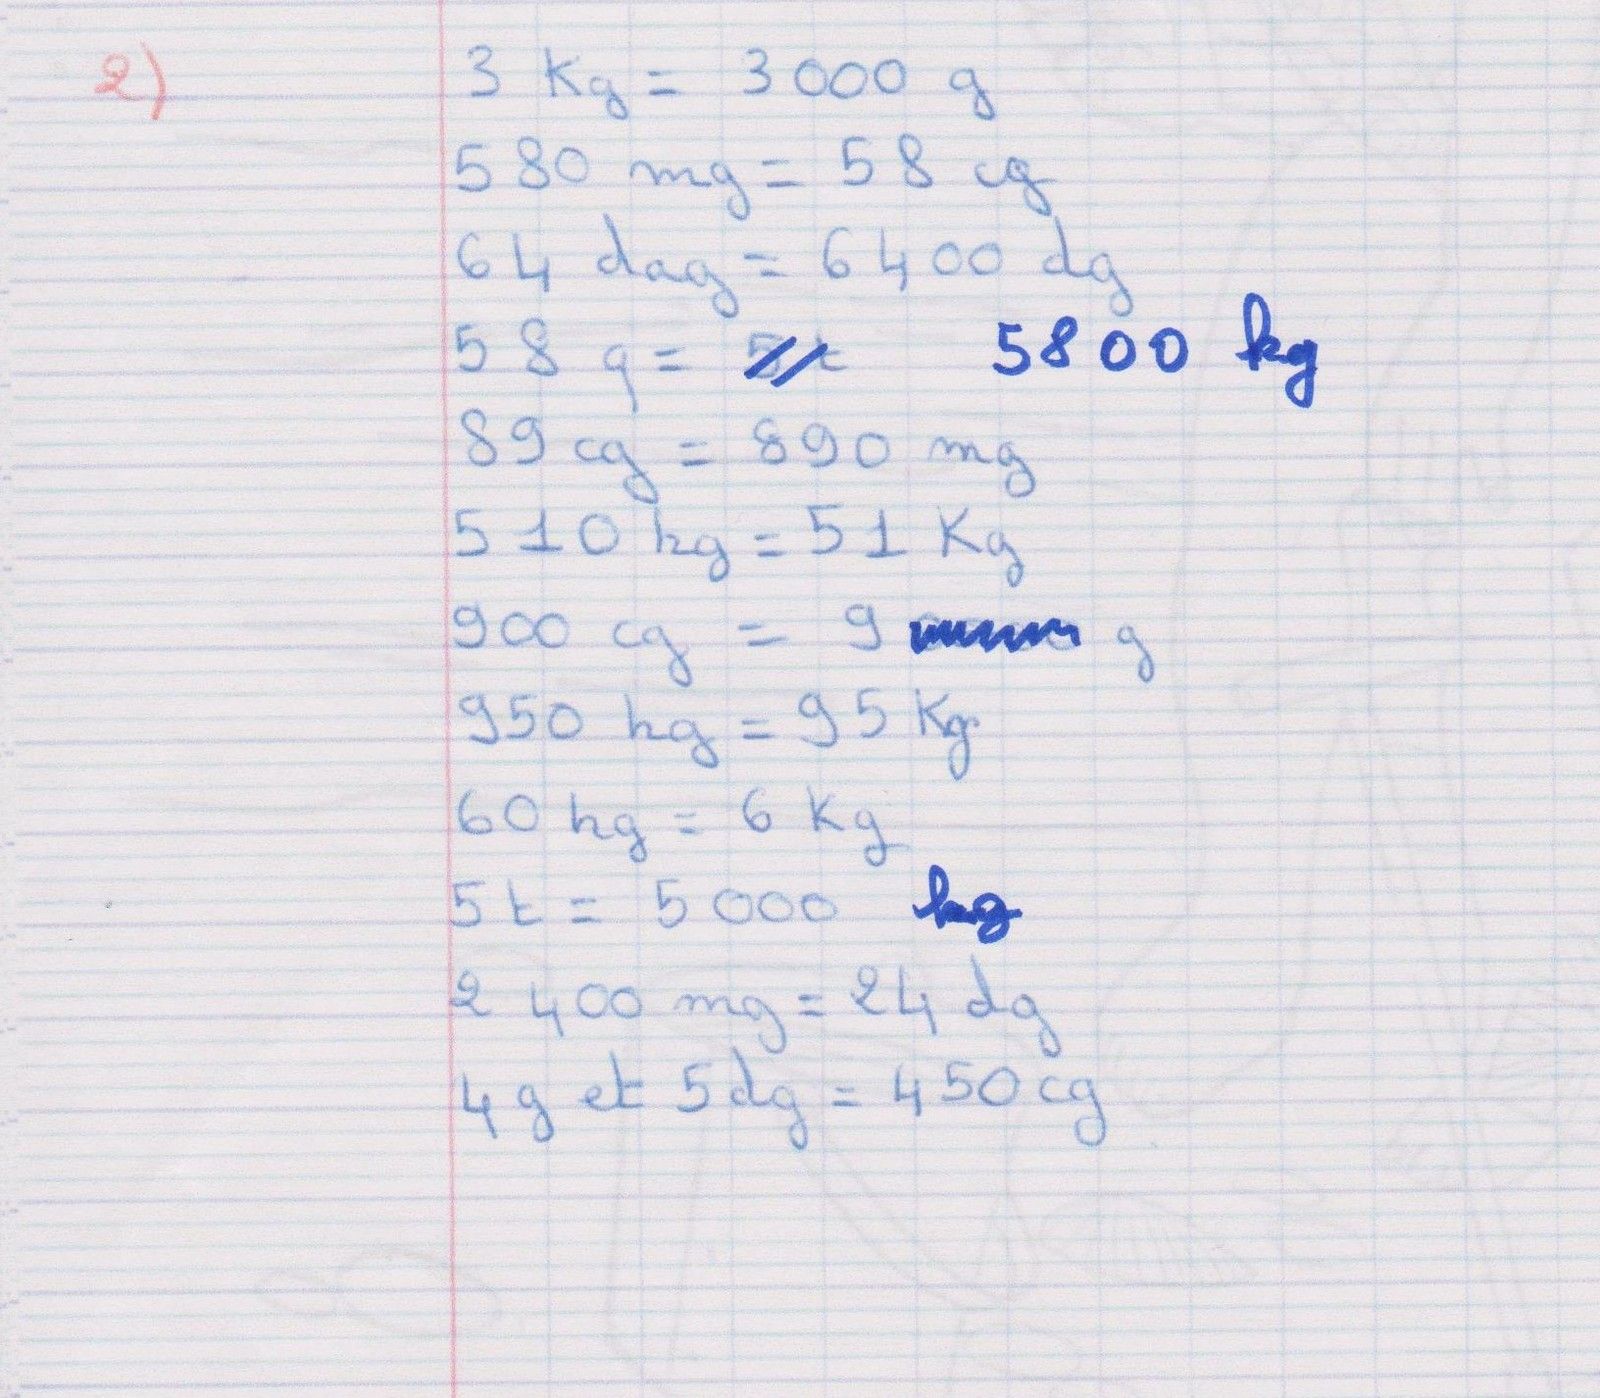 2) 3 Kg = 3000 g
580 mg = 58 cg
64 dag = 6400 dg
58 q = 5800 kg
89 cg = 890 mg
510 hg = 51 Kg
900 cg = 9 g
950 hg = 95 Kg
60 hg = 6 Kg
5 t = 5000 kg
2 400 mg = 24 dg
4 g et 5 dg = 450 cg